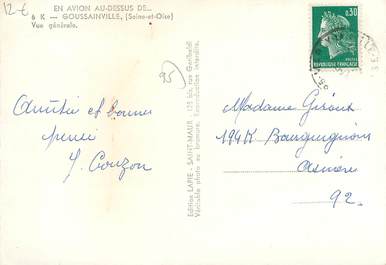 12 €
EN AVION AU-DESSUS DE...
6 K — GOUSSAINVILLE, (Seine-et-Oise)
Vue générale.
0,30
REPUBLIQUE FRANÇAISE
95
Amitié et bonnes
pensées
Y. Couzon
Edition LAPIE - SAINT-MAUR - 125 bis, rue Garibaldi
Véritable photo au bromure. Reproduction interdite.
Madame Giroux
194K Bourguignons
Asnière
92.